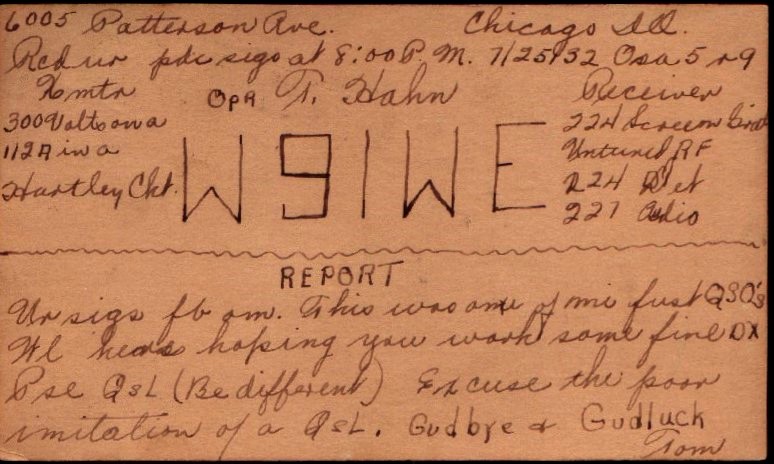 6005 Patterson Ave. Chicago Ill.
Recd ur pdc sigs at 8:00 P.M. 7/25/32 Qsa 5 r9
Xmtr OpR T. Hahn Receiver
300 Volts on a 224 Screen Grid
112A in a Untuned RF
Hartley Ckt. W9IWE 224 Det
227 Audio
REPORT
Ur sigs fb om. This was one of mi fust QSO's
Wl heres hoping you work some fine DX
Pse QsL (Be different) Excuse the poor
imitation of a QsL. Gudbye & Gudluck
Tom